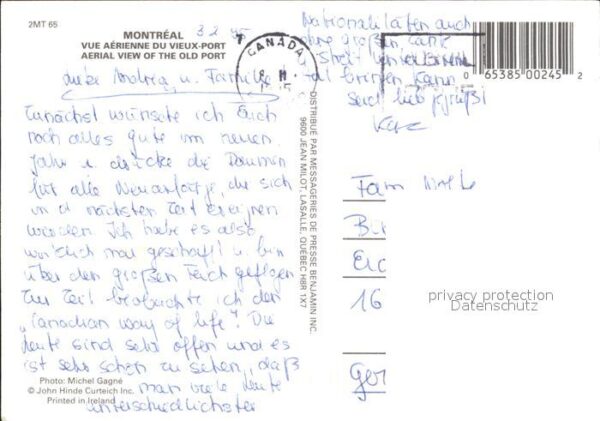 2MT 65
MONTRÉAL
VUE AÉRIENNE DU VIEUX-PORT
AERIAL VIEW OF THE OLD PORT
3.2.
Liebe Andrea u. Familie!
Zunächst wünsche ich Euch
noch alles gute im neuen
Jahr u. drücke die Daumen
für alle Neuanfänge, die sich
in d nächsten Zeit ereignen
werden. Ich habe es also
wirklich mal geschafft u bin
über den großen Teich geflogen
Zur Zeit beobachte ich den
"Canadian way of life". Die
Leute sind sehr offen und es
ist sehr schön zu sehen, daß
man viele Leute
unterschiedlichster
Photo: Michel Gagné
© John Hinde Curteich Inc.
Printed in Ireland
Nationalitäten auch
ohne großen Zank
u Streit unter
bringen kann
Seid lieb gegrüßt
CANADA
DISTRIBUÉ PAR MESSAGERIES DE PRESSE BENJAMIN INC.
9600 JEAN MILOT, LASALLE, QUÉBEC H8R 1X7
0 65385 00245 2
Fam
16
Ger
privacy protection
Datenschutz